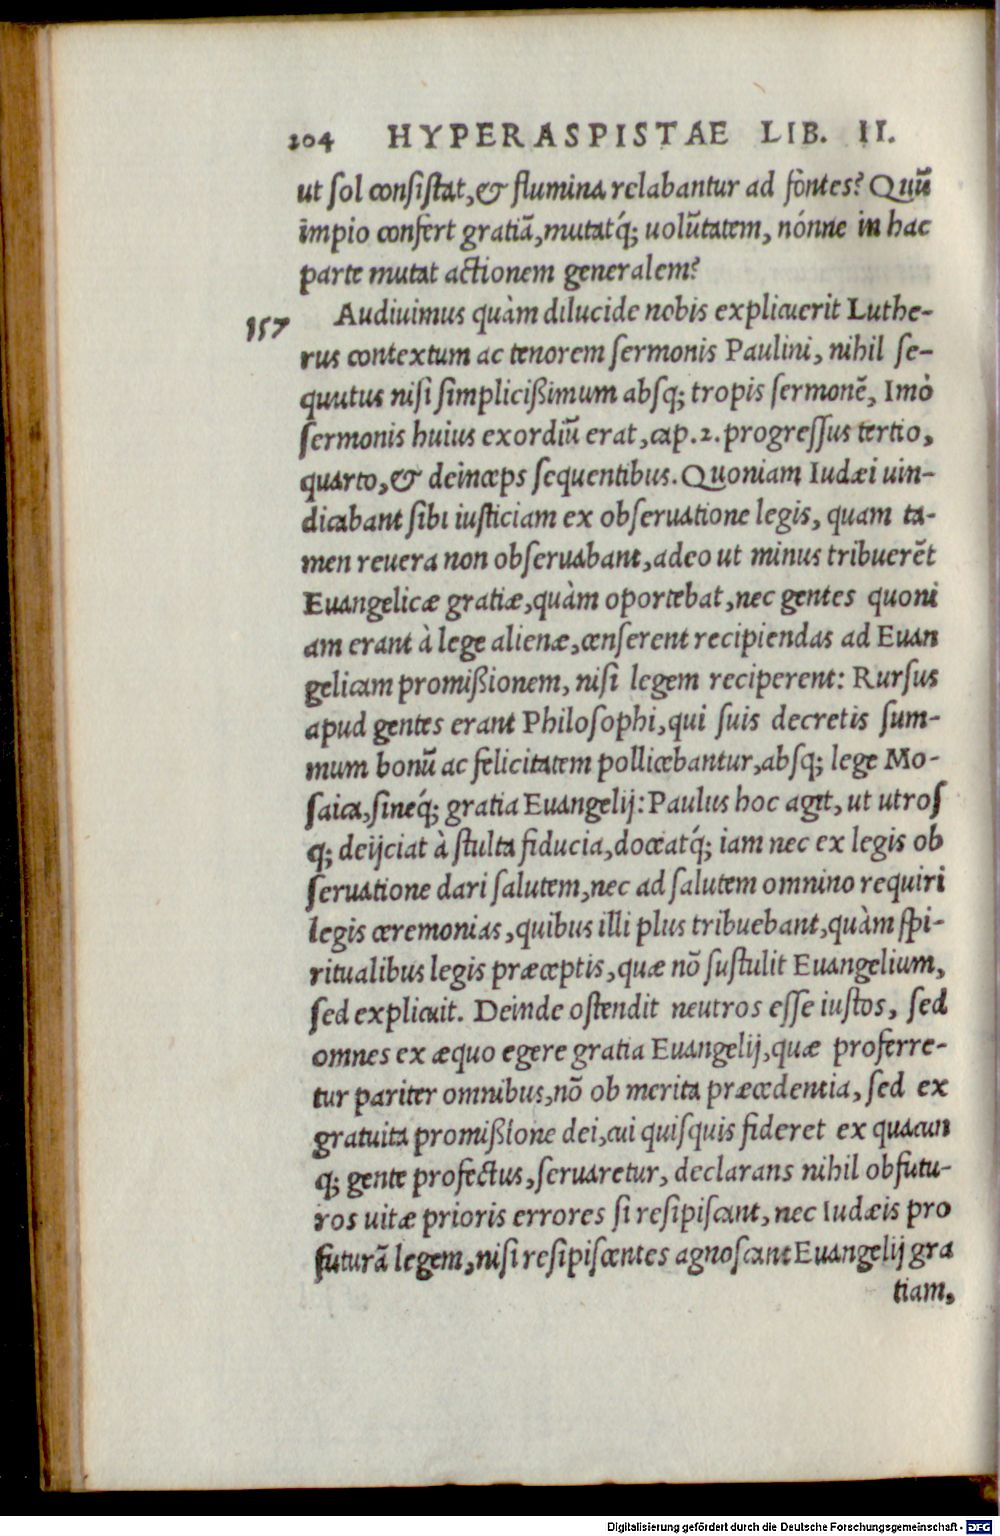 204 HYPERASPISTAE LIB. II.
ut ſol conſiſtat, & flumina relabantur ad fontes? Quū
impio confert gratiā, mutatq́; uolūtatem, nónne in hac
parte mutat actionem generalem?
157
Audiuimus quàm dilucide nobis explicuerit Luthe-
rus contextum ac tenorem ſermonis Paulini, nihil ſe-
quutus niſi ſimpliciſsimum abſq; tropis ſermonē, Imò
ſermonis huius exordiū erat, cap. 2. progreſſus tertio,
quarto, & deinceps ſequentibus. Quoniam Iudæi uin-
dicabant ſibi iuſticiam ex obſeruatione legis, quam ta-
men reuera non obſeruabant, adeo ut minus tribuerēt
Euangelicæ gratiæ, quàm oportebat, nec gentes quoni
am erant à lege alienæ, cenſerent recipiendas ad Euan
gelicam promiſsionem, niſi legem reciperent: Rurſus
apud gentes erant Philoſophi, qui ſuis decretis ſum-
mum bonū ac felicitatem pollicebantur, abſq; lege Mo-
ſaica, ſineq́; gratia Euangelij: Paulus hoc agit, ut utroſ
q; deijciat à ſtulta fiducia, doceatq́; iam nec ex legis ob
ſeruatione dari ſalutem, nec ad ſalutem omnino requiri
legis ceremonias, quibus illi plus tribuebant, quàm ſpi-
ritualibus legis præceptis, quæ nō ſuſtulit Euangelium,
ſed explicuit. Deinde oſtendit neutros eſſe iuſtos, ſed
omnes ex æquo egere gratia Euangelij, quæ proferre-
tur pariter omnibus, nō ob merita præcedentia, ſed ex
gratuita promiſsione dei, cui quiſquis fideret ex quacun
q; gente profectus, ſeruaretur, declarans nihil obfutu-
ros uitæ prioris errores ſi reſipiſcant, nec Iudæis pro
futurā legem, niſi reſipiſcentes agnoſcant Euangelij gra
tiam,
Digitalisierung gefördert durch die Deutsche Forschungsgemeinschaft - DFG